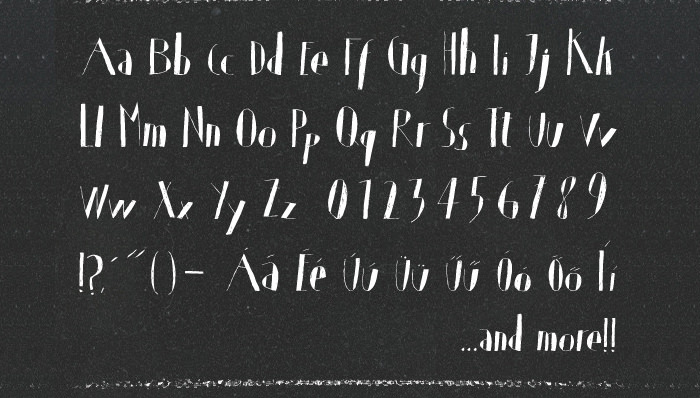 Aa Bb Cc Dd Ee Ff Gg Hh Ii Jj Kk
Ll Mm Nn Oo Pp Qq Rr Ss Tt Uu Vv
Ww Xx Yy Zz 0123456789
!?,´˝()- Áá Éé Úú Üü Űű Óó Őő Íí
...and more!!